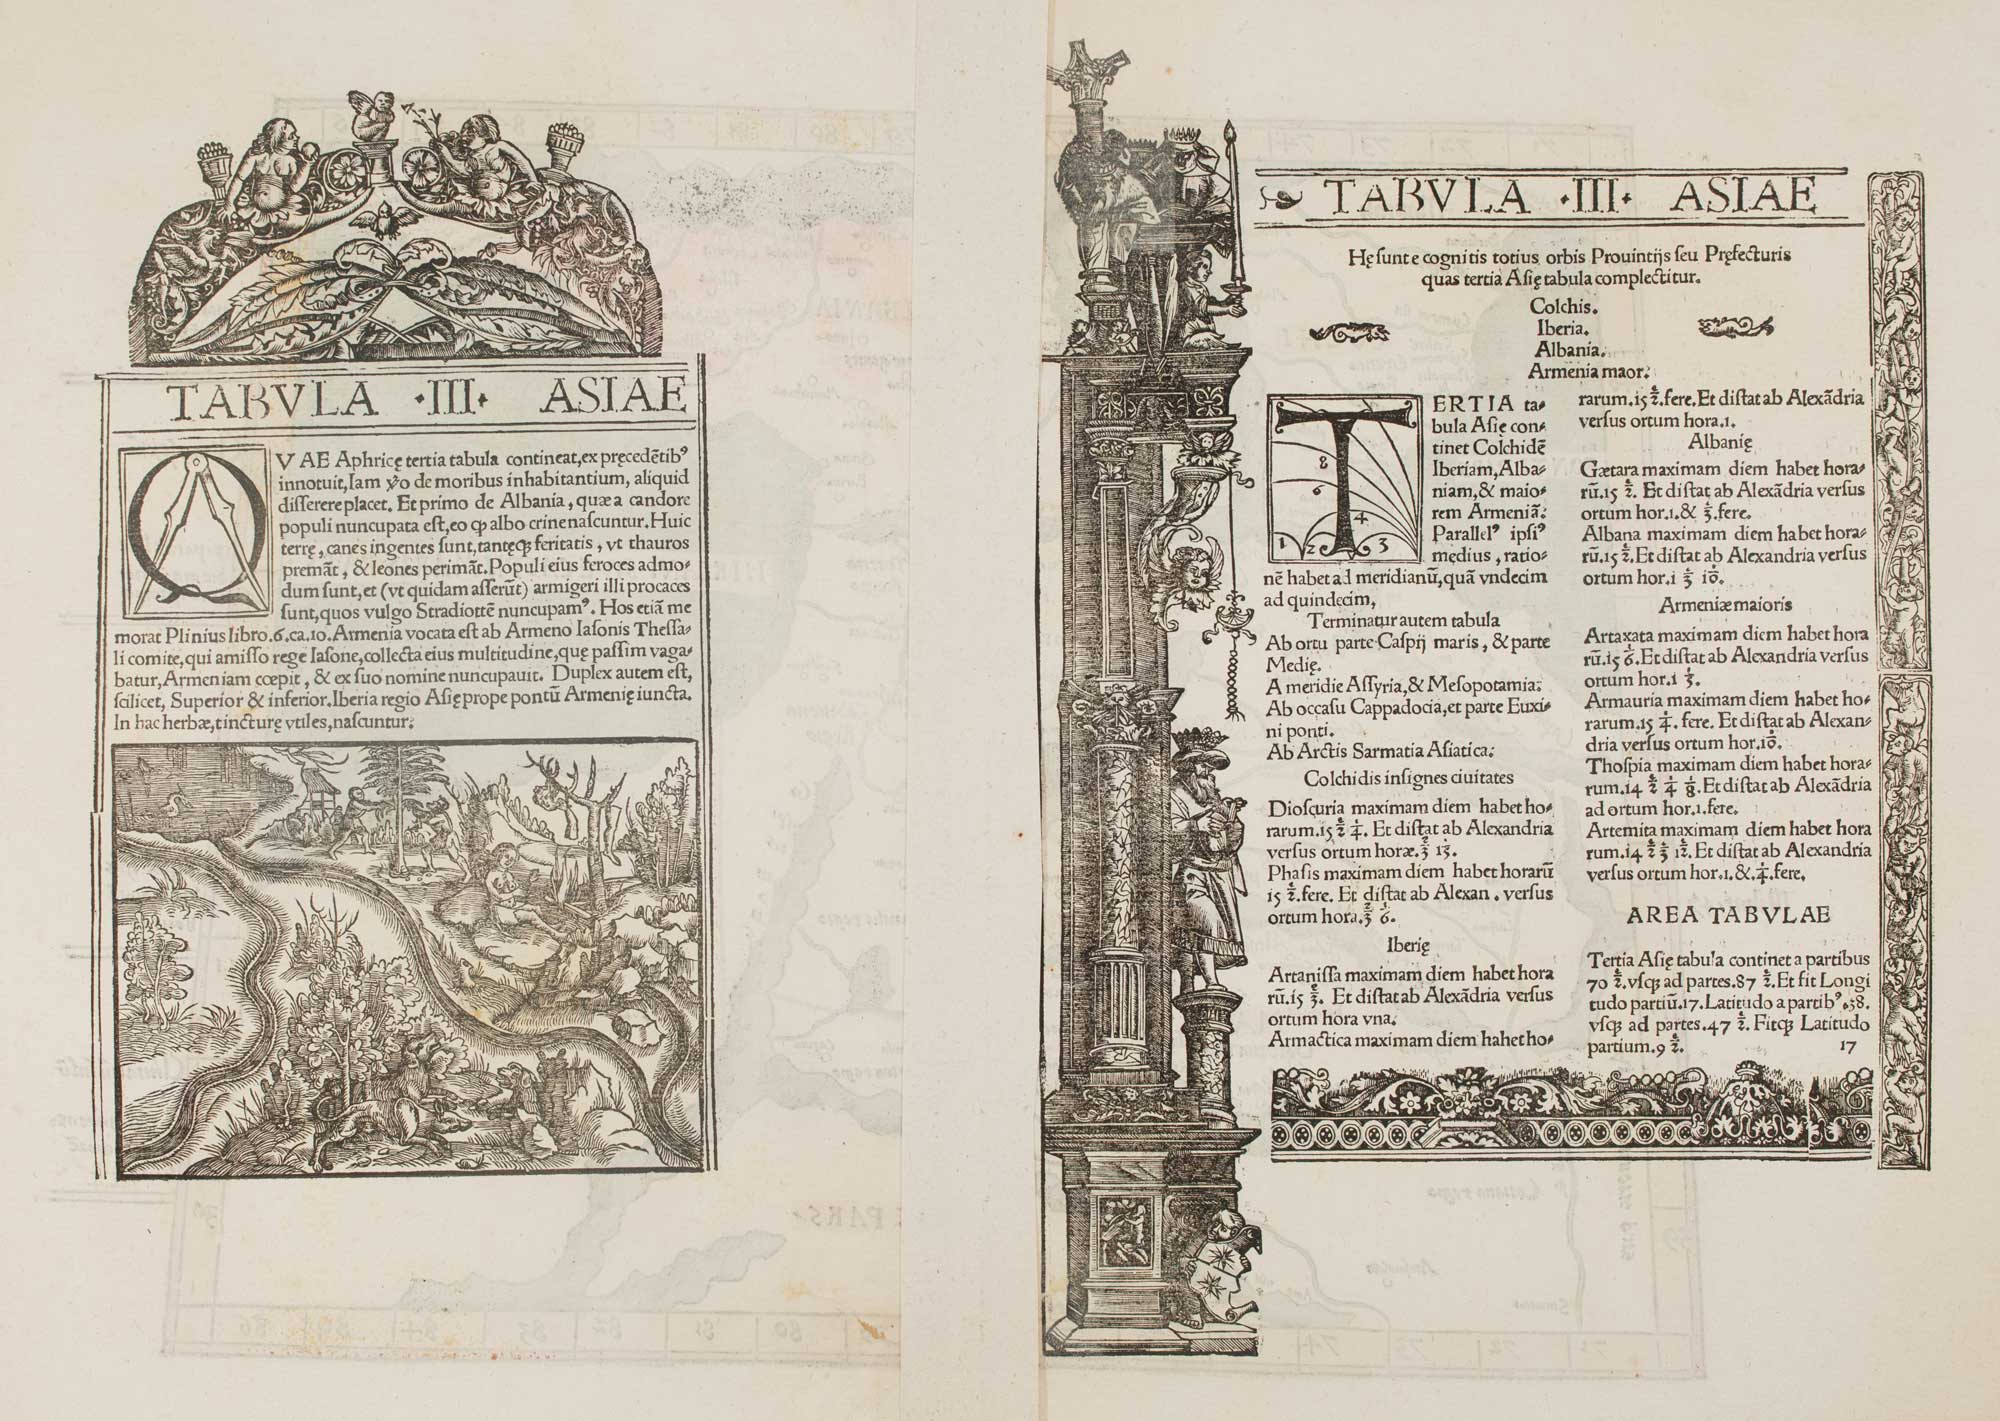 TABVLA ·III· ASIAE
QVAE Aphricę tertia tabula contineat, ex pręcedẽtibꝰ
innotuit, Iam ꝟo de moribus inhabitantium, aliquid
disserere placet. Et primo de Albania, quæ a candore
populi nuncupata est, eo ꝙ albo crine nascuntur. Huic
terrę, canes ingentes sunt, tantęqꝫ feritatis, vt thauros
premãt, & leones perimãt. Populi eius feroces admo⸗
dum sunt, et (vt quidam asserũt) armigeri illi procaces
sunt, quos vulgo Stradiottẽ nuncupamꝰ. Hos etiã me
morat Plinius libro.6.ca.10. Armenia vocata est ab Armeno Iasonis Thessa⸗
li comite, qui amisso rege Iasone, collecta eius multitudine, quę passim vaga⸗
batur, Armeniam cœpit, & ex suo nomine nuncupauit. Duplex autem est,
scilicet, Superior & inferior. Iberia regio Asię prope pontũ Armenię iuncta.
In hac herbæ, tincturę vtiles, nascuntur.
TABVLA ·III· ASIAE
Hę sunt e cognitis totius orbis Prouintijs seu Pręfecturis
quas tertia Asię tabula complectitur.
Colchis.
Iberia.
Albania.
Armenia maor.
TERTIA ta⸗
bula Asię con⸗
tinet Colchidẽ
Iberiam, Alba⸗
niam, & maio⸗
rem Armeniã.
Parallelꝰ ipsiꝰ
medius, ratio⸗
nẽ habet ad meridianũ, quã vndecim
ad quindecim,
8
6
4
1 2 3
Terminatur autem tabula
Ab ortu parte Caspij maris, & parte
Medię.
A meridie Assyria, & Mesopotamia.
Ab occasu Cappadocia, et parte Euxi⸗
ni ponti.
Ab Arctis Sarmatia Asiatica.
Colchidis insignes ciuitates
Dioscuria maximam diem habet ho⸗
rarum.15 ½ ¼. Et distat ab Alexandria
versus ortum horæ.⅔ 1/15.
Phasis maximam diem habet horarũ
15 ½.fere. Et distat ab Alexan. versus
ortum hora.⅔ ⅙.
Iberię
Artanissa maximam diem habet hora
rũ.15 ⅔. Et distat ab Alexãdria versus
ortum hora vna.
Armactica maximam diem habet ho⸗
rarum.15 ½.fere. Et distat ab Alexãdria
versus ortum hora.1.
Albanię
Gætara maximam diem habet hora⸗
rũ.15 ½. Et distat ab Alexãdria versus
ortum hor.1.& ⅓.fere.
Albana maximam diem habet hora⸗
rũ.15 ½. Et distat ab Alexãdria versus
ortum hor.1 ⅓ 1/10.
Armeniæ maioris
Artaxata maximam diem habet hora
rũ.15 ⅙. Et distat ab Alexandria versus
ortum hor.1 ⅓.
Armauria maximam diem habet ho⸗
rarum.15 ¼. fere. Et distat ab Alexan⸗
dria versus ortum hor.1/10.
Thospia maximam diem habet hora⸗
rum.14 ½ ¼ ⅛. Et distat ab Alexãdria
ad ortum hor.1.fere.
Artemita maximam diem habet hora
rum.14 ½ ⅓ 1/12. Et distat ab Alexandria
versus ortum hor.1.& ¼.fere.
AREA TABVLAE
Tertia Asię tabula continet a partibus
70 ½.vsqꝫ ad partes.87 ½. Et fit Longi
tudo partiũ.17. Latitudo a partibꝰ.38.
vsqꝫ ad partes.47 ½. Fitqꝫ Latitudo
partium.9 ½.
17